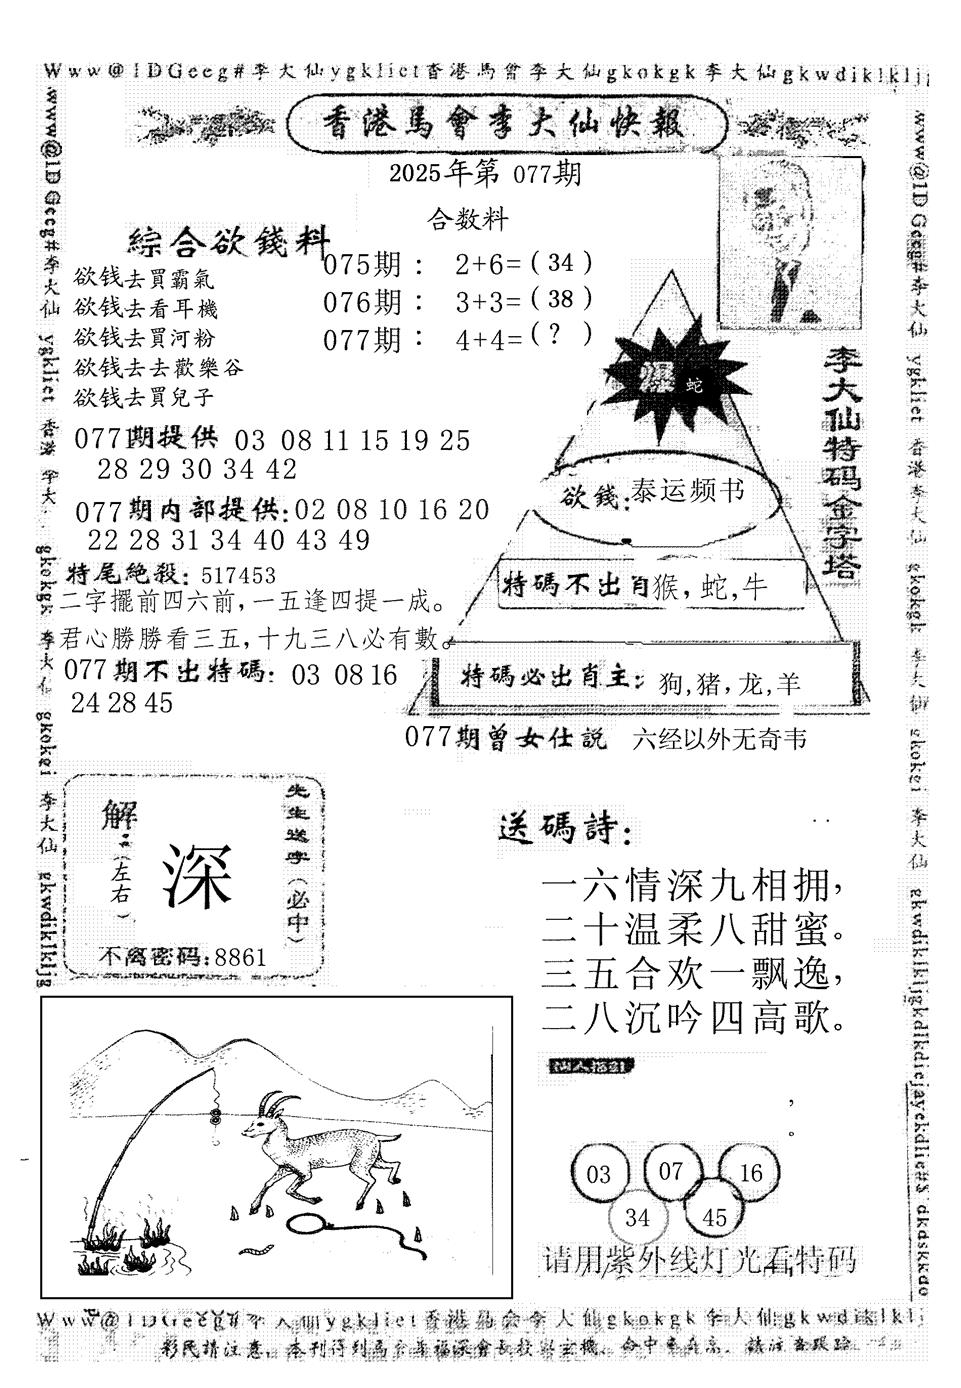 Www@1DGeeg#李大仙ygkliet香港馬會李大仙gkokgk李大仙gkwdiklkljg
香港馬會李大仙快報
2025年第 077期
合数料
綜合欲錢料
欲钱去買霸氣
欲钱去看耳機
欲钱去買河粉
欲钱去去歡樂谷
欲钱去買兒子
075期： 2+6=（34）
076期： 3+3=（38）
077期： 4+4=（?）
077期提供 03 08 11 15 19 25
28 29 30 34 42
077期内部提供:02 08 10 16 20
22 28 31 34 40 43 49
特尾絶殺: 517453
二字擺前四六前,一五逢四提一成。
君心勝勝看三五,十九三八必有數。
077期不出特碼: 03 08 16
24 28 45
爆 蛇
欲錢:泰运频书
特碼不出肖猴, 蛇,牛
特碼必出肖主: 狗,猪, 龙,羊
李大仙特码金字塔
077期曾女仕説 六经以外无奇韦
解:(左右)
深
先生送字(必中)
不离密码:8861
送碼詩:
一六情深九相拥,
二十温柔八甜蜜。
三五合欢一飘逸,
二八沉吟四高歌。
,
。
03 07 16
34 45
请用紫外线灯光看特码
Www@1DGeeg#李大仙ygkliet香港馬会李大仙gkokgk李大仙gkwdiklklj
彩民請注意